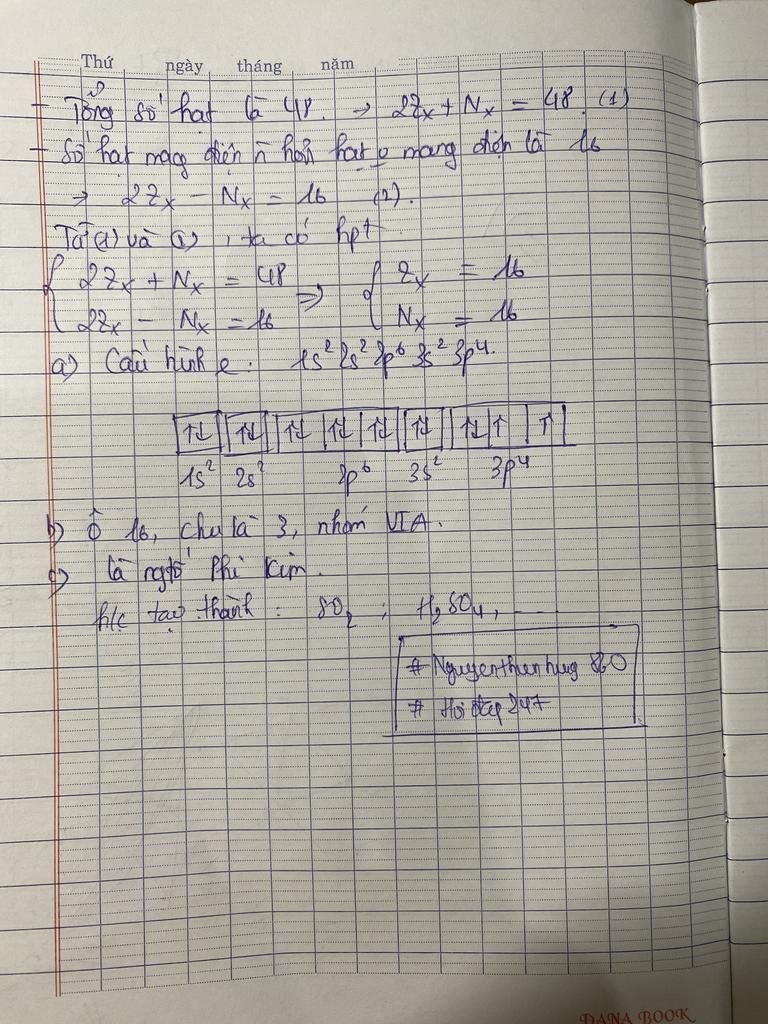 Thứ ngày tháng năm
- Tổng số hạt là 48. → 2Zx + Nx = 48 (1)
- Số hạt mag điện n hơn hạt o mang điện là 16
→ 2Zx - Nx = 16 (2).
Từ (1) và (2), ta có hpt
{ 2Zx + Nx = 48 => { Zx = 16
2Zx - Nx = 16 Nx = 16
a) Cấu hình e. 1s² 2s² 2p⁶ 3s² 3p⁴.
↑↓ ↑↓ ↑↓ ↑↓ ↑↓ ↑↓ ↑↓ ↑ ↑
1s² 2s² 2p⁶ 3s² 3p⁴
b) Ô 16, chu kì 3, nhóm VIA.
c) là ngtố Phi kim.
h/c tạo thành: SO₂; H₂SO₄, ...
# Nguyenthanhung
# Hoidap247
DANA BOOK